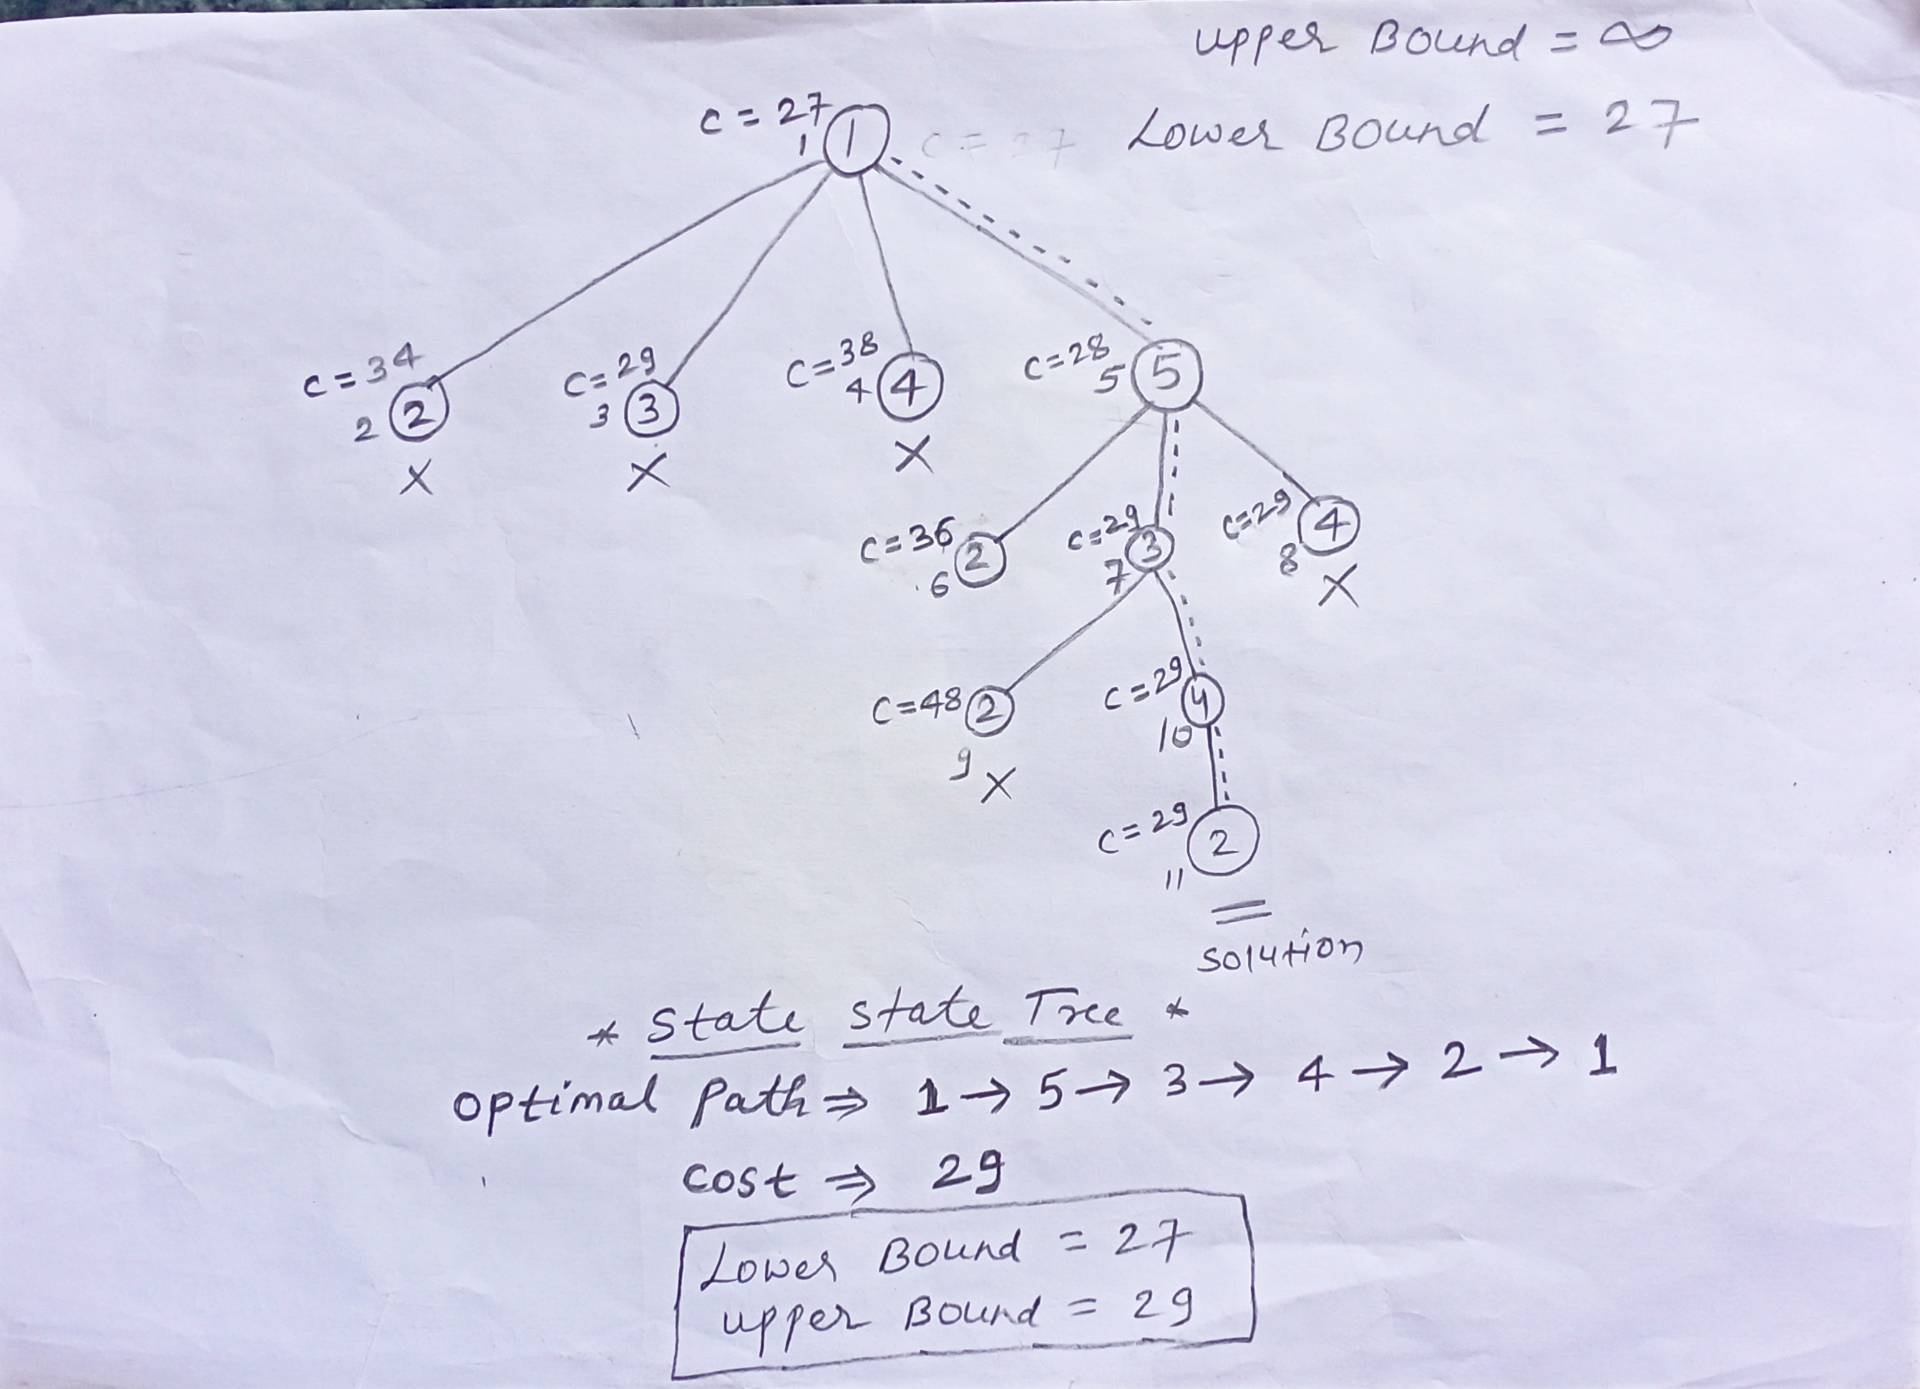 upper Bound = ∞
Lower Bound = 27
C = 27
1
1
C = 27
C = 34
2
2
C = 29
3
3
C = 38
4
4
C = 28
5
5
C = 36
6
2
C = 29
7
3
C = 29
8
4
C = 48
9
2
C = 29
10
4
C = 29
11
2
solution
* State state Tree *
optimal Path ⇒ 1 → 5 → 3 → 4 → 2 → 1
cost ⇒ 29
Lower Bound = 27
upper Bound = 29